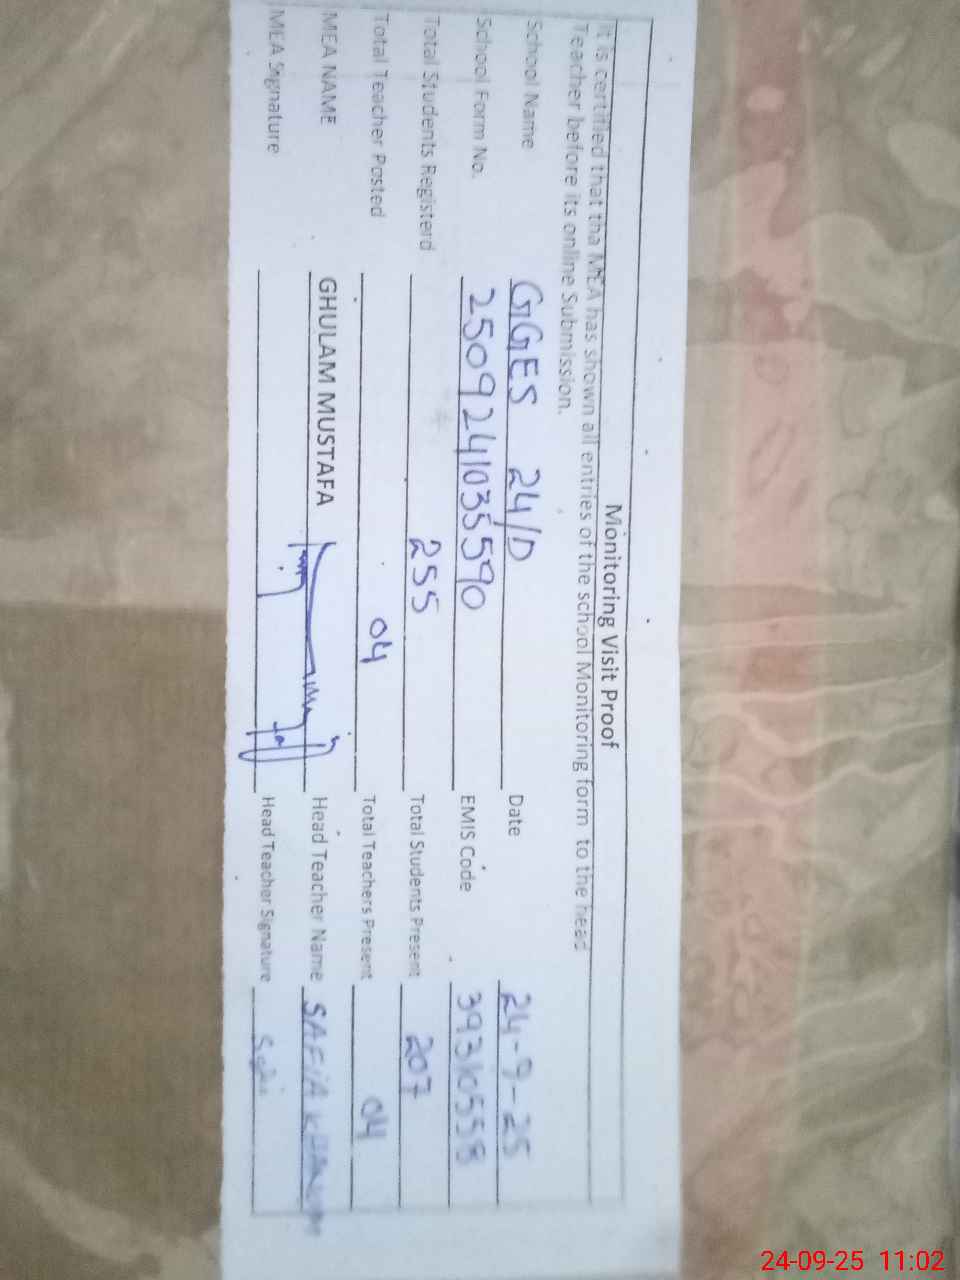 Monitoring Visit Proof
It is certified that tha MEA has shown all entries of the school Monitoring form to the head
Teacher before its online Submission.
School Name GGES 24/D Date 24-9-25
School Form No. 2509241035590 EMIS Code 39310558
Total Students Registerd 255 Total Students Present 207
Total Teacher Posted 04 Total Teachers Present 04
MEA NAME GHULAM MUSTAFA Head Teacher Name SAFIA
MEA Signature Head Teacher Signature Safia
24-09-25 11:02